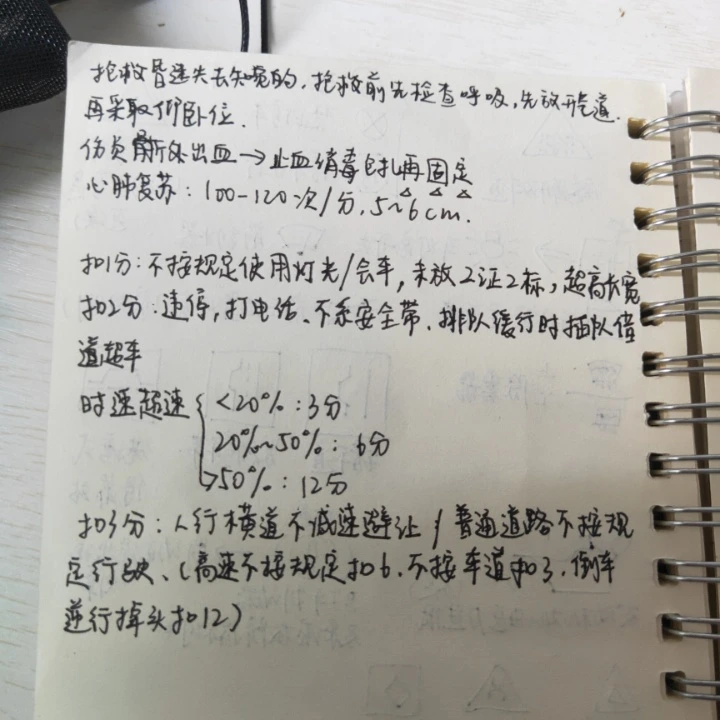 抢救昏迷失去知觉的，抢救前先检查呼吸，先放开气道.
再采取仰卧位.
伤员骨折外出血→止血消毒包扎再固定
心肺复苏：100-120次/分，5~6cm.
扣1分：不按规定使用灯光/会车，未放2证2标，超高长宽
扣2分：违停，打电话、不系安全带、排队缓行时插队借
道超车
时速超速 <20%：3分
20%~50%：6分
>50%：12分
扣3分：人行横道不减速避让/普通道路不按规
定行驶、（高速不按规定扣6、不按车道扣3，倒车
逆行掉头扣12）